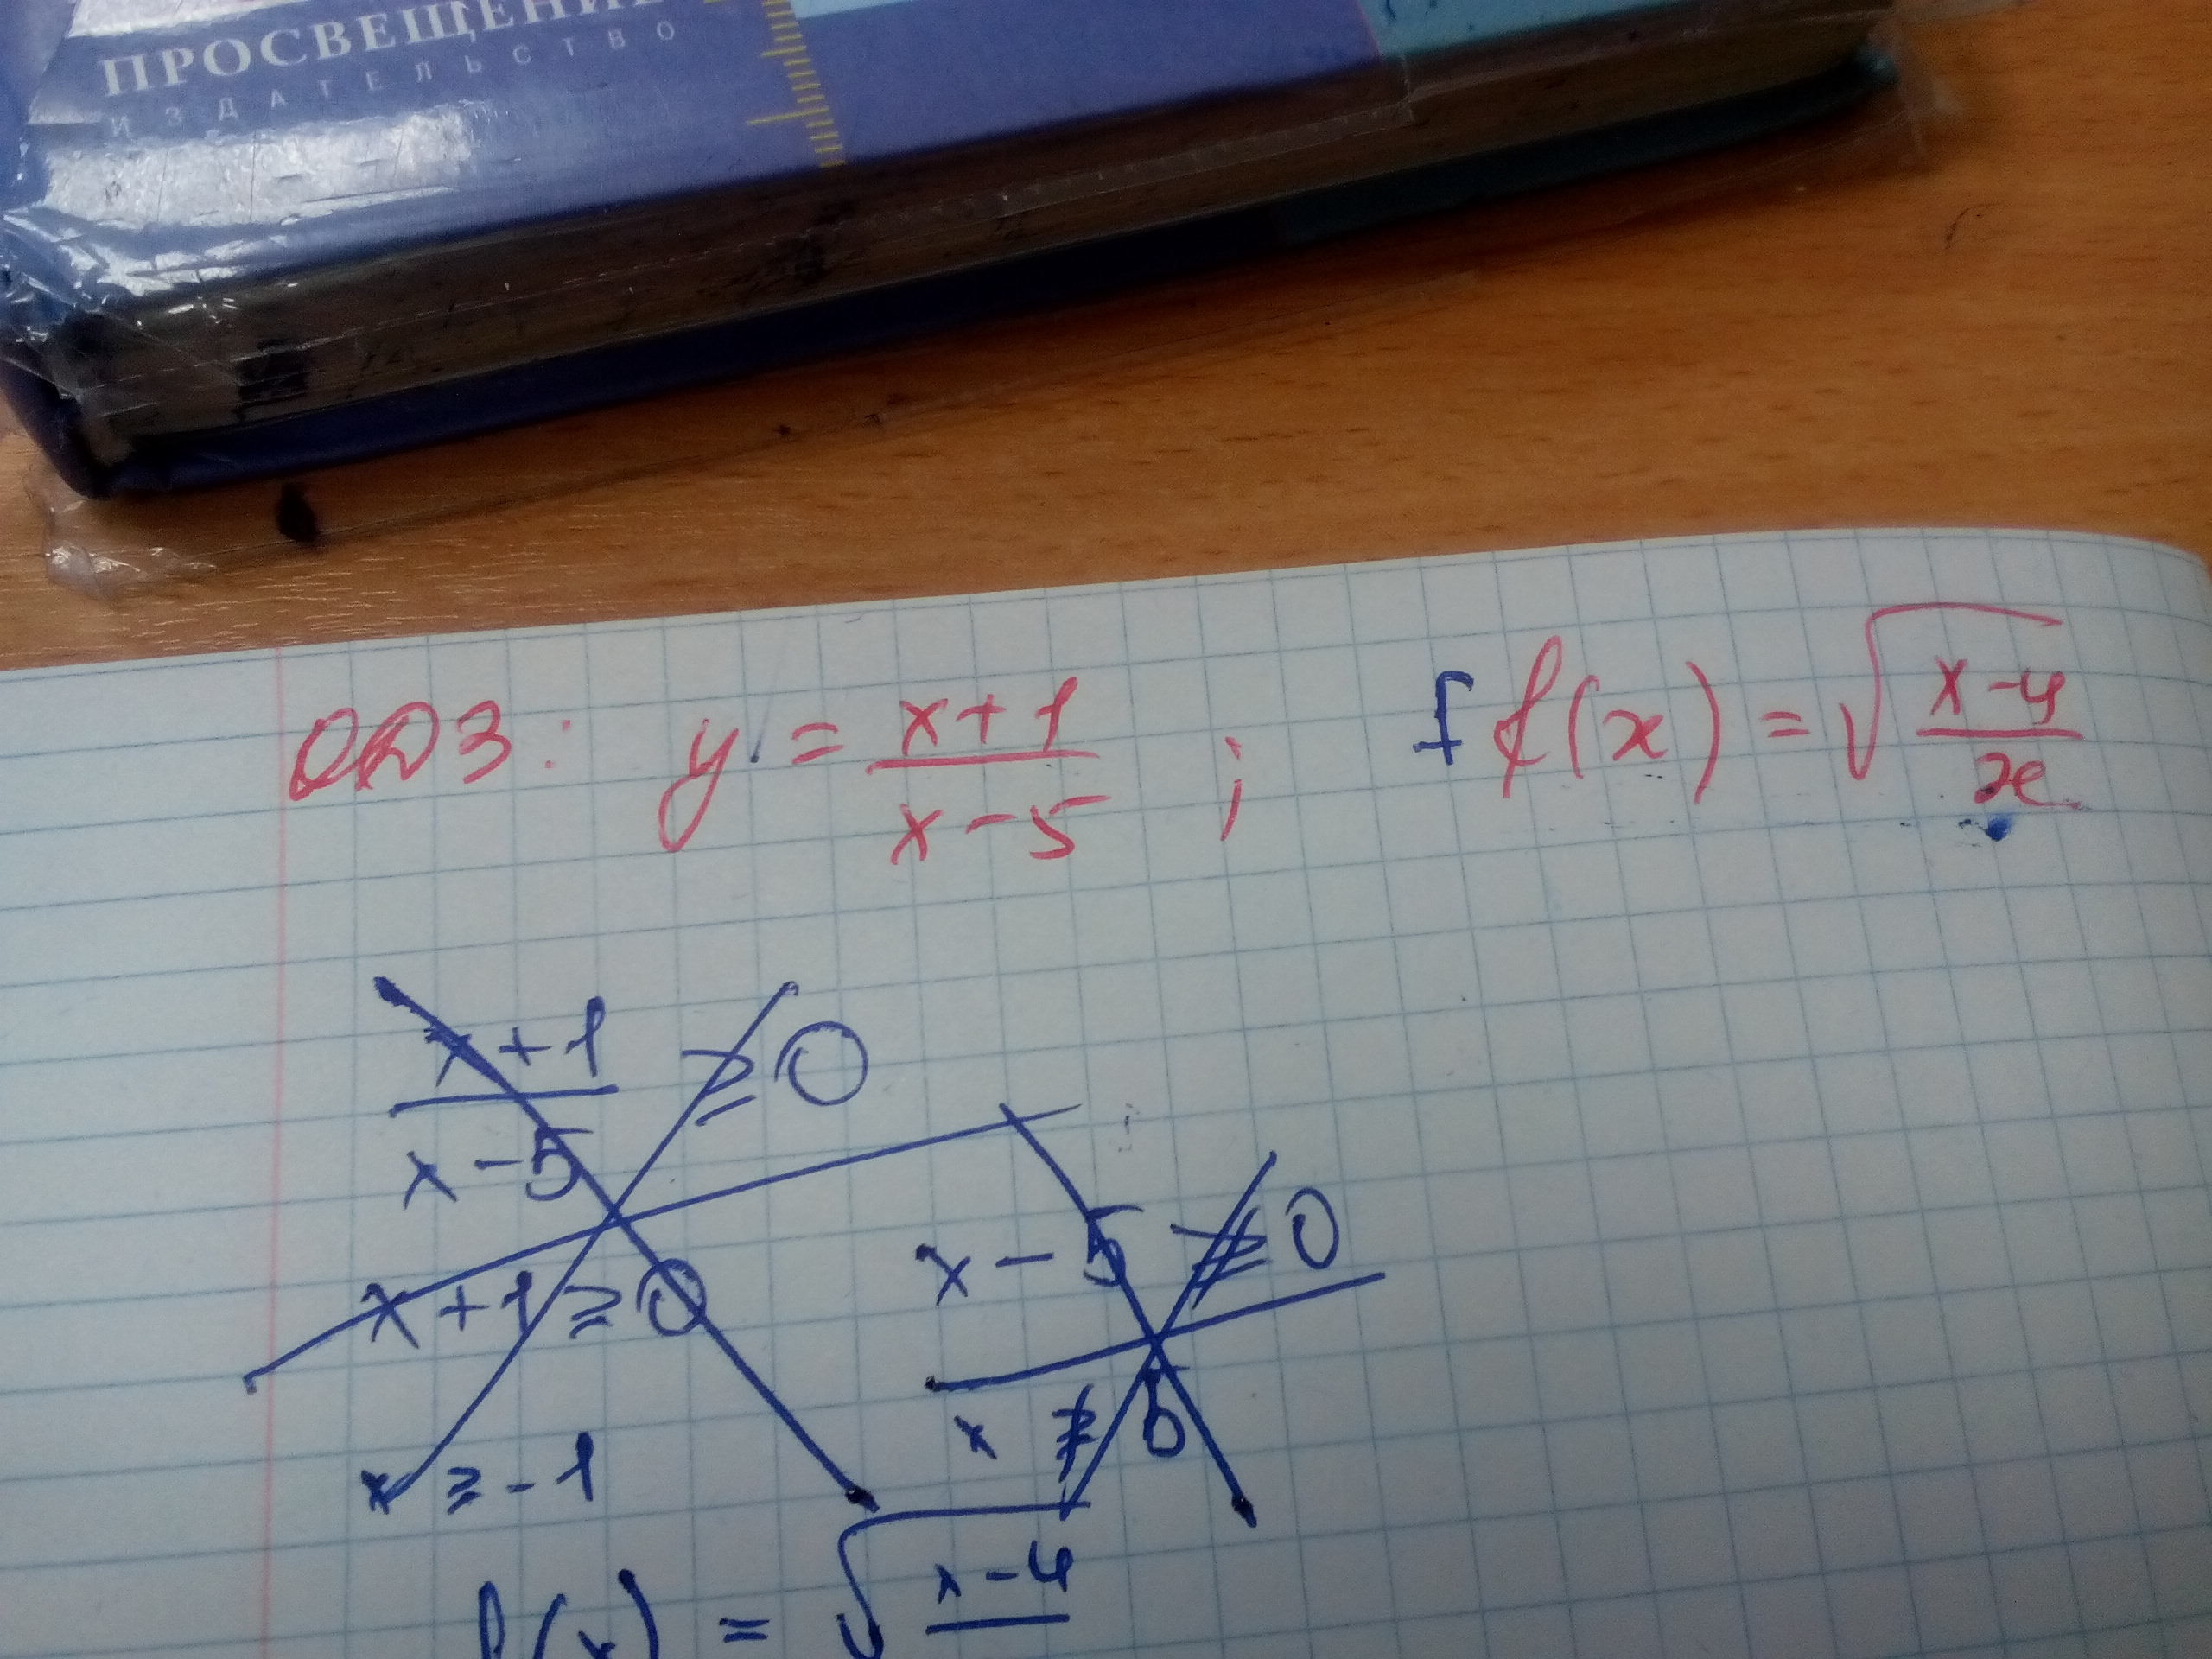 ПРОСВЕЩЕНИЕ
ИЗДАТЕЛЬСТВО
ОДЗ: y = (x+1)/(x-5) ; f f(x) = √((x-4)/x)
(x+1)/(x-5) ≥ 0
x+1 ≥ 0
x-5 ≠ 0
x ≥ -1
x ≠ 5
f(x) = √(x-4